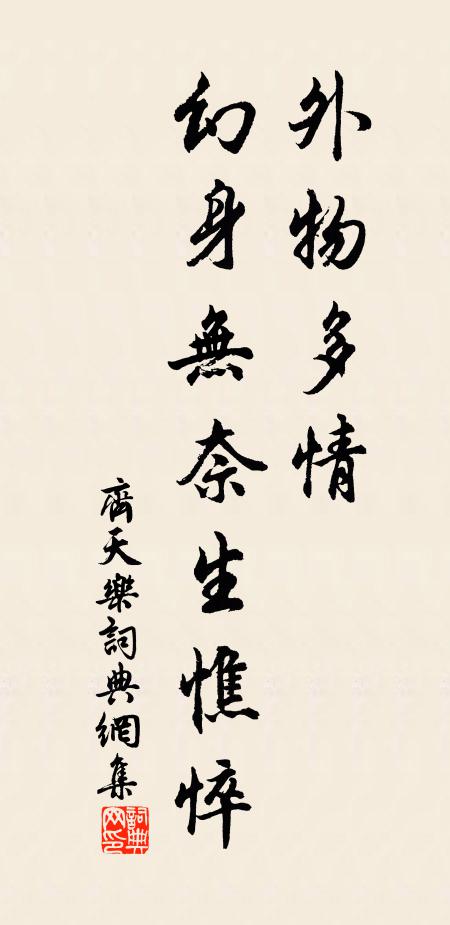 外物多情
幻身無奈生憔悴
齊天樂詞典網集
詞典
网印